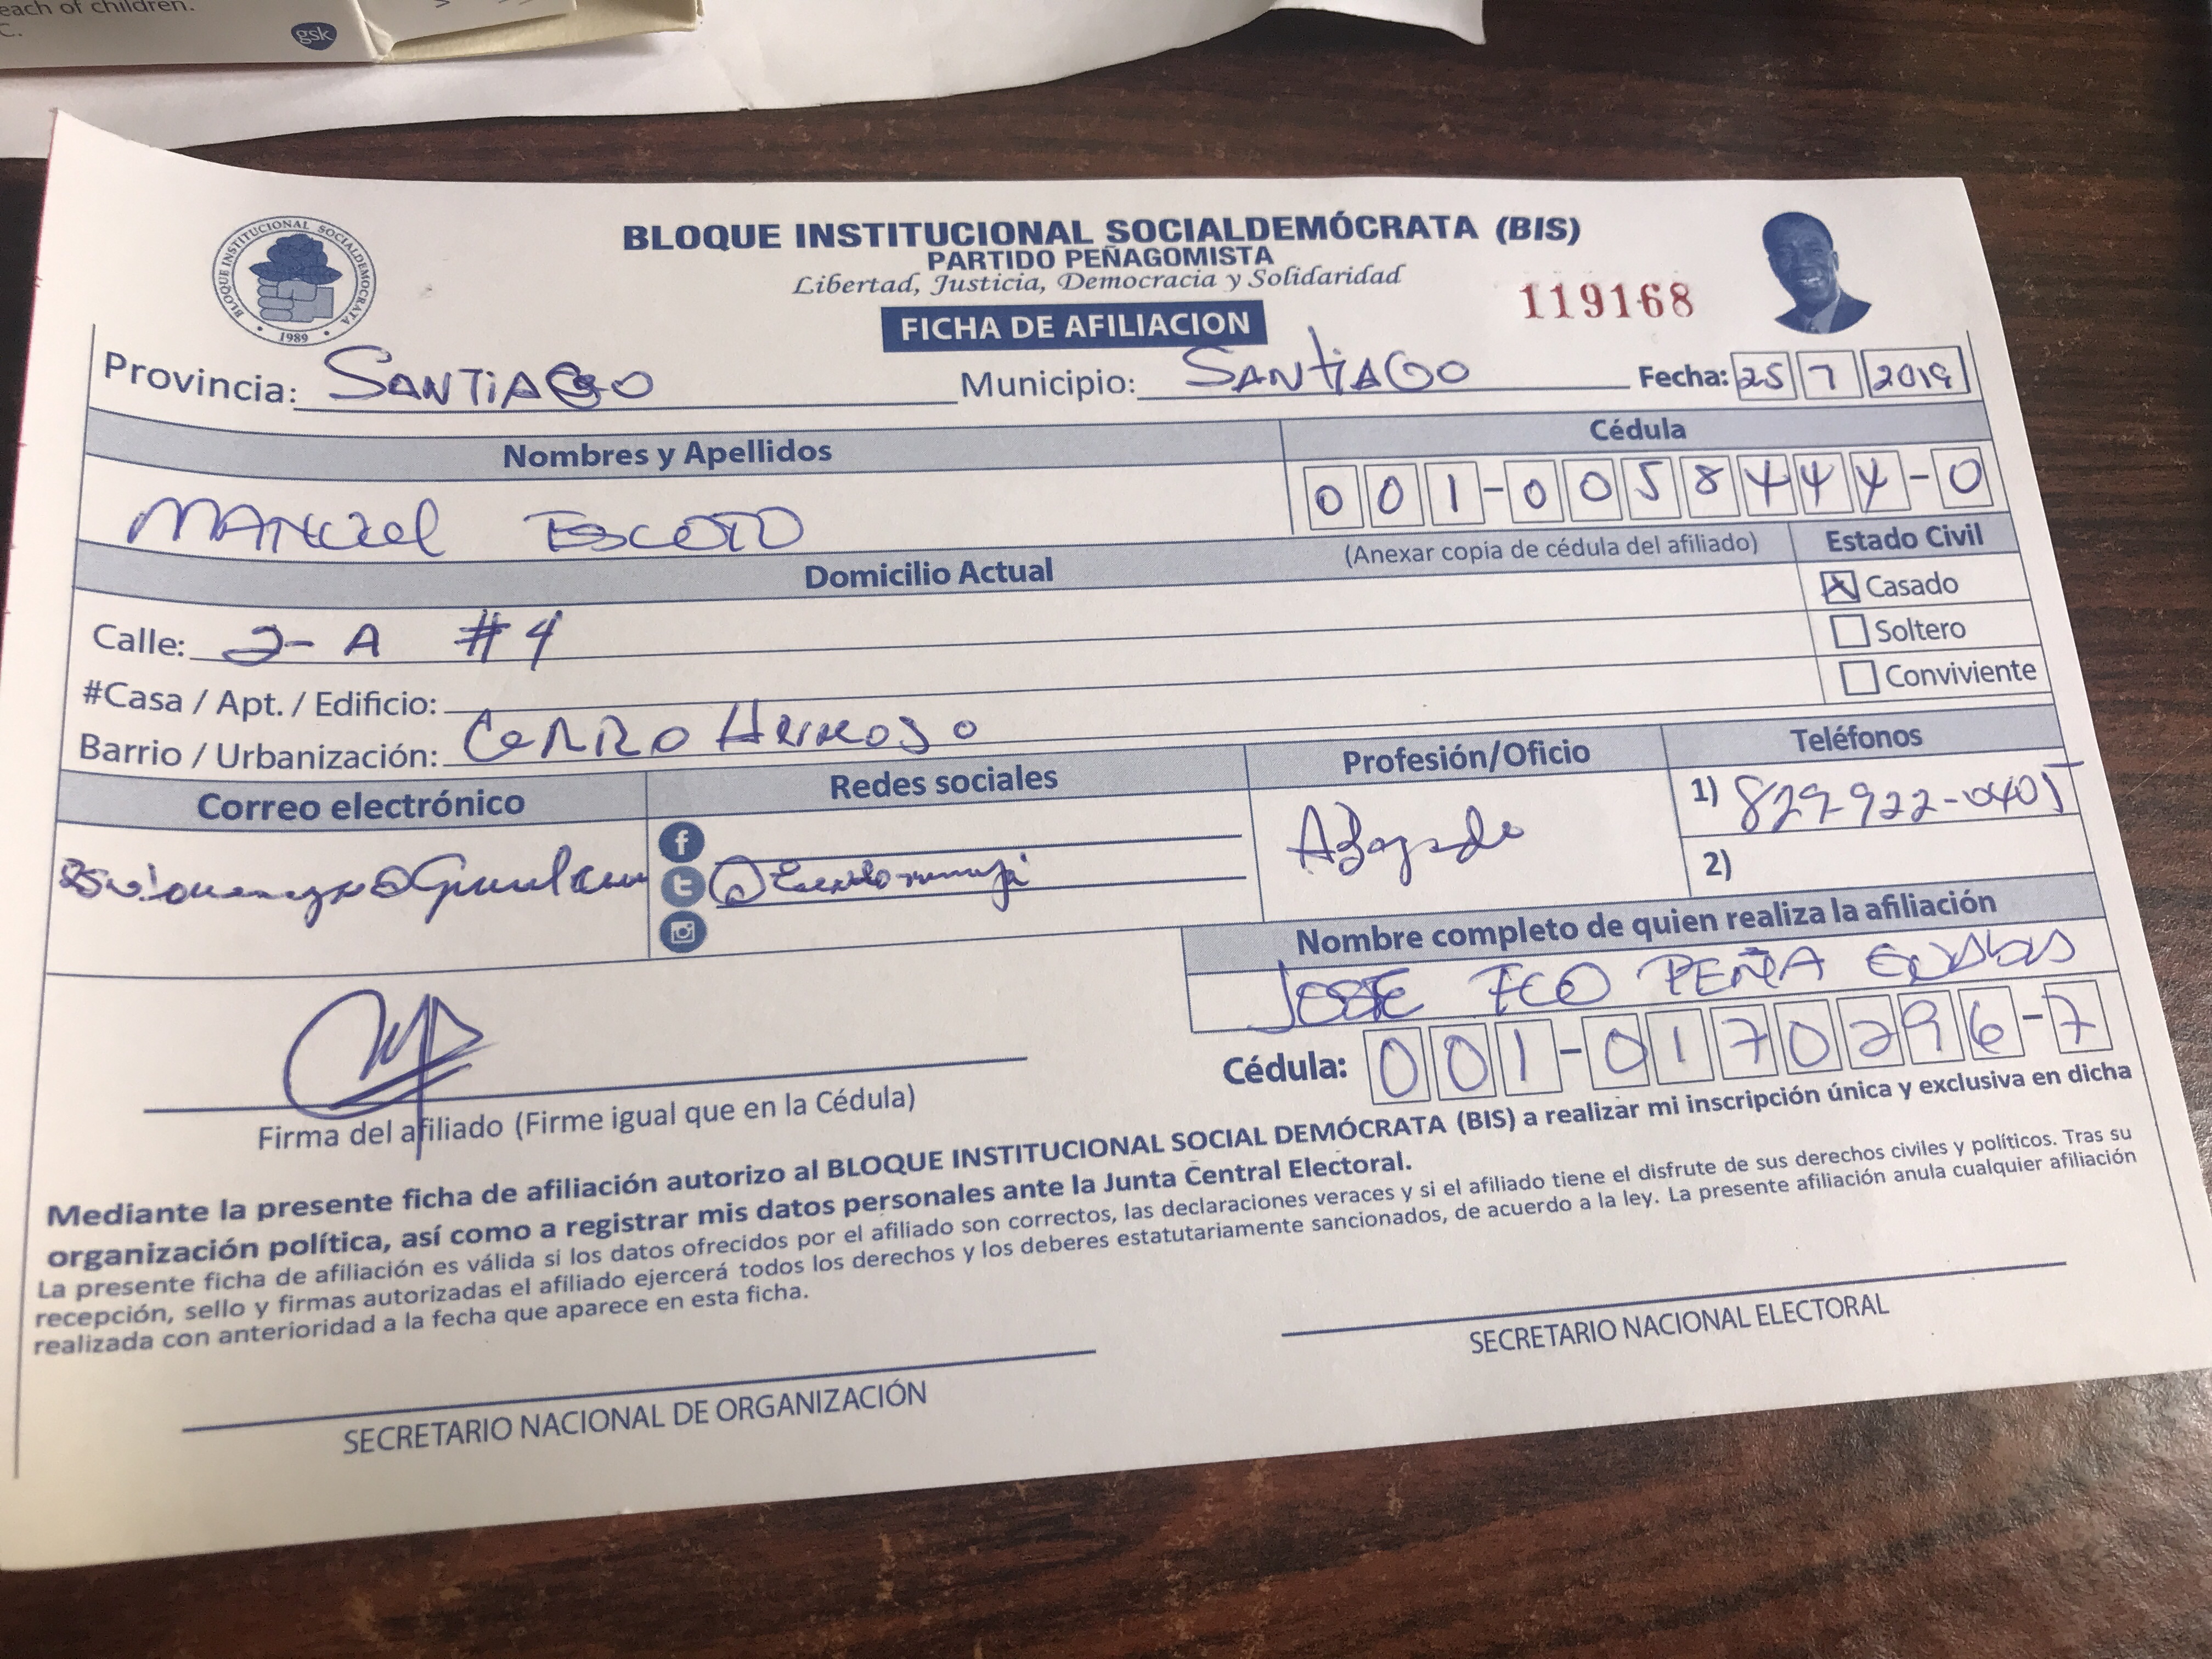 each of children.
C.
gsk
BLOQUE INSTITUCIONAL SOCIALDEMOCRATA
1989
BLOQUE INSTITUCIONAL SOCIALDEMÓCRATA (BIS)
PARTIDO PEÑAGOMISTA
Libertad, Justicia, Democracia y Solidaridad
119168
FICHA DE AFILIACION
Provincia: SANTIAGO Municipio: SANTIAGO Fecha: 25 7 2019
Nombres y Apellidos Cédula
MANUEL ESCOTO 001-0058444-0
Domicilio Actual (Anexar copia de cédula del afiliado) Estado Civil
Calle: 2-A #4 X Casado
Soltero
#Casa / Apt. / Edificio: Conviviente
Barrio / Urbanización: CERRO HERMOSO
Correo electrónico Redes sociales Profesión/Oficio Teléfonos
Abogado 1) 829922-0405
2)
Nombre completo de quien realiza la afiliación
JOSE FCO PEÑA
Cédula: 001-0170296-7
Firma del afiliado (Firme igual que en la Cédula)
Mediante la presente ficha de afiliación autorizo al BLOQUE INSTITUCIONAL SOCIAL DEMÓCRATA (BIS) a realizar mi inscripción única y exclusiva en dicha
organización política, así como a registrar mis datos personales ante la Junta Central Electoral.
La presente ficha de afiliación es válida si los datos ofrecidos por el afiliado son correctos, las declaraciones veraces y si el afiliado tiene el disfrute de sus derechos civiles y políticos. Tras su
recepción, sello y firmas autorizadas el afiliado ejercerá todos los derechos y los deberes estatutariamente sancionados, de acuerdo a la ley. La presente afiliación anula cualquier afiliación
realizada con anterioridad a la fecha que aparece en esta ficha.
SECRETARIO NACIONAL DE ORGANIZACIÓN SECRETARIO NACIONAL ELECTORAL